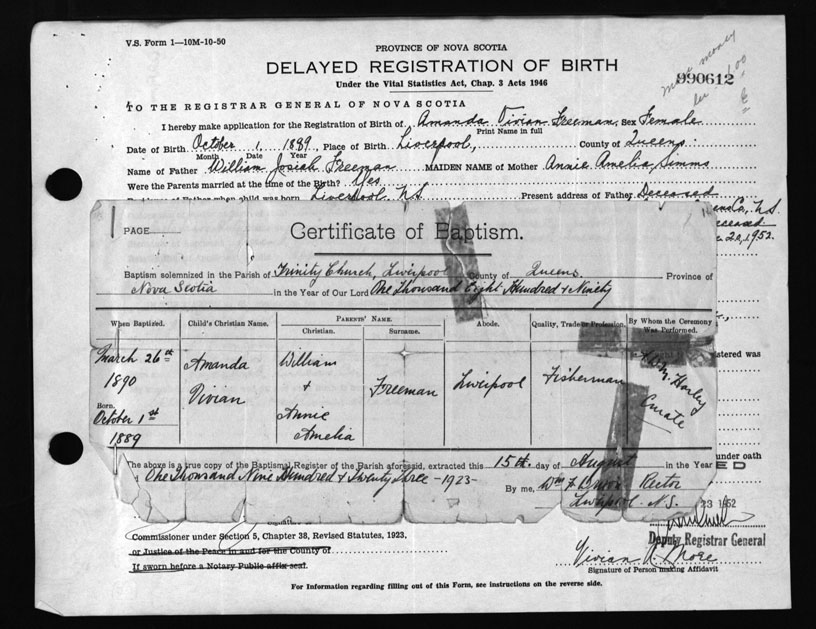 V.S. Form 1—10M-10-50
PROVINCE OF NOVA SCOTIA
DELAYED REGISTRATION OF BIRTH
Under the Vital Statistics Act, Chap. 3 Acts 1946
990612
TO THE REGISTRAR GENERAL OF NOVA SCOTIA
I hereby make application for the Registration of Birth of Amanda Vivian Freeman, Sex Female
Print Name in full
Date of Birth October 1, 1889, Place of Birth Liverpool, County of Queens
Month Date Year
Name of Father William Josiah Freeman MAIDEN NAME of Mother Annie Amelia Simms
Were the Parents married at the time of the Birth? Yes
of Father when child was born Liverpool N.S. Present address of Father Deceased
Co, N.S.
1952.
PAGE
Certificate of Baptism.
Baptism solemnized in the Parish of Trinity Church, Liverpool County of Queens Province of
Nova Scotia in the Year of Our Lord One Thousand Eight Hundred & Ninety
When Baptized. Child's Christian Name. Parents' Name. Christian. Surname. Abode. Quality, Trade or Profession. By Whom the Ceremony Was Performed.
March 26th 1890 Amanda Vivian William & Annie Amelia Freeman Liverpool Fisherman Wm. Curate
Born. October 1st 1889
istered was
The above is a true copy of the Baptismal Register of the Parish aforesaid, extracted this 15th. day of August in the Year
under oath
One Thousand Nine Hundred & Twenty Three -1923-
By me, Rector
Liverpool N.S.
23 1952
Commissioner under Section 5, Chapter 38, Revised Statutes, 1923,
or Justice of the Peace in and for the County of
If sworn before a Notary Public affix seal.
Deputy Registrar General
Vivian A. More
Signature of Person making Affidavit
For Information regarding filling out of this Form, see instructions on the reverse side.